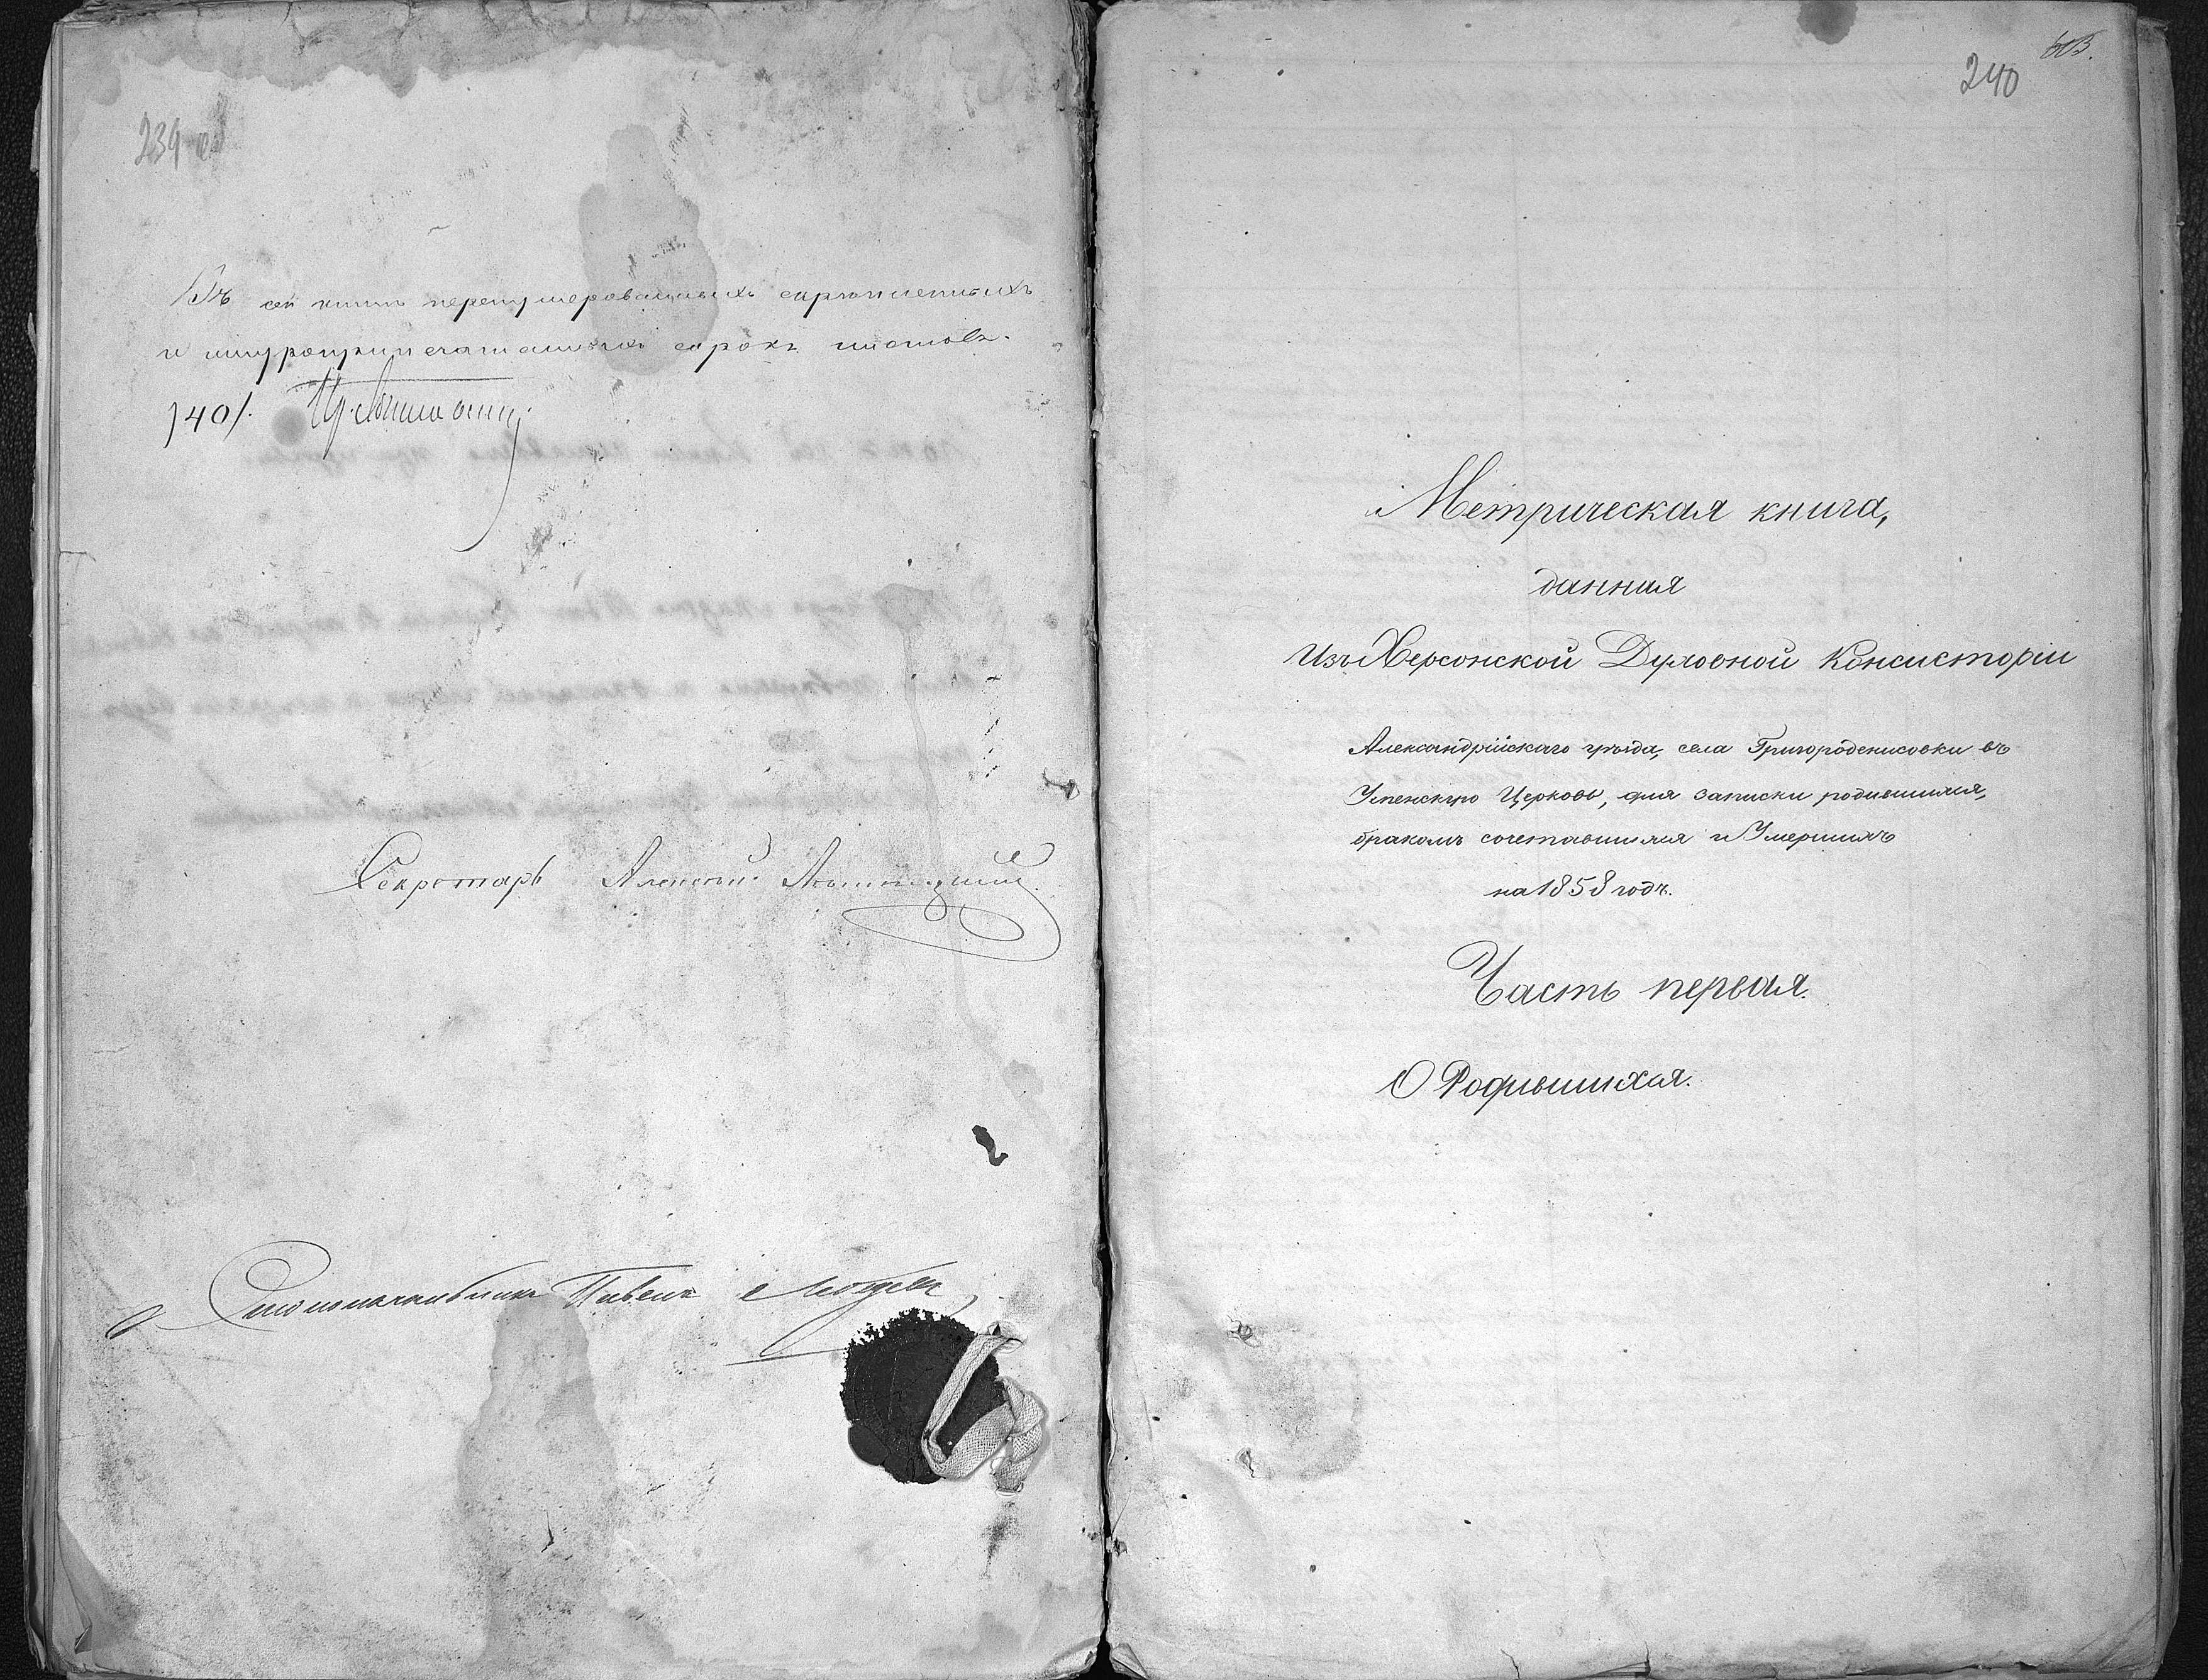 239 об
Въ сей книге перенумерованныхъ скрепленныхъ
и шнуроприпечатанныхъ сорокъ листовъ.
/40/.
Секретарь Алексий
Столоначальникъ Павелъ
240
603.
Метрическая книга,
данная
Изъ Херсонской Духовной Консисторіи
Александрійскаго уѣзда, села Григороденисовки въ
Успенскую Церковь, для записки родившихся,
бракомъ сочетавшихся и Умершихъ
на 1858 годъ.
Часть первая.
О Родившихся.